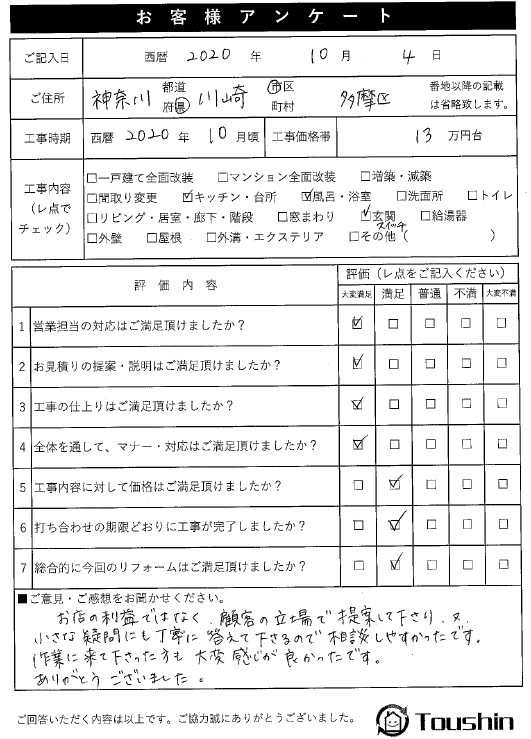 お客様アンケート
ご記入日 西暦 2020 年 10 月 4 日
ご住所 神奈川 都道府県 川崎 市区町村 多摩区 番地以降の記載は省略致します。
工事時期 西暦 2020 年 10 月頃 工事価格帯 13 万円台
工事内容（レ点でチェック）
□一戸建て全面改装 □マンション全面改装 □増築・減築
□間取り変更 ☑キッチン・台所 ☑風呂・浴室 □洗面所 □トイレ
□リビング・居室・廊下・階段 □窓まわり ☑玄関 □給湯器
スイッチ
□外壁 □屋根 □外溝・エクステリア □その他（ ）
評価内容 評価（レ点をご記入ください）
大変満足 満足 普通 不満 大変不満
1 営業担当の対応はご満足頂けましたか？ ☑ □ □ □ □
2 お見積りの提案・説明はご満足頂けましたか？ ☑ □ □ □ □
3 工事の仕上りはご満足頂けましたか？ ☑ □ □ □ □
4 全体を通して、マナー・対応はご満足頂けましたか？ ☑ □ □ □ □
5 工事内容に対して価格はご満足頂けましたか？ □ ☑ □ □ □
6 打ち合わせの期限どおりに工事が完了しましたか？ □ ☑ □ □ □
7 総合的に今回のリフォームはご満足頂けましたか？ □ ☑ □ □ □
■ご意見・ご感想をお聞かせください。
お店の利益ではなく、顧客の立場で提案して下さり、又、
小さな疑問にも丁寧に答えて下さるので相談しやすかったです。
作業に来て下さった方も大変感じが良かったです。
ありがとうございました。
ご回答いただく内容は以上です。ご協力誠にありがとうございました。
Toushin